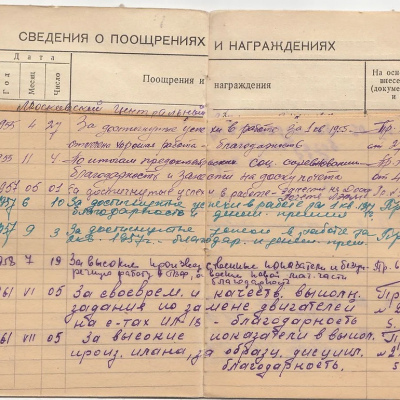 СВЕДЕНИЯ О ПООЩРЕНИЯХ И НАГРАЖДЕНИЯХ
Дата
Год Месяц Число
Поощрения и награждения
На осн
внесе
(докуме
и
Московский Центральный
1955 4 27 За достигнутые успехи в работе за 1 кв 1955. Пр.
отмечен хорошая работа - благодарность от 2
1955 11 4 По итогам предоктябрьск. соц. соревнования Пр.
благодарность и занести на доску почета от 4
1957 05 01 За достигнутые успехи в работе -
1957 6 10 За достигнутые успехи в работе за Пр
благодарность и денеж. премия
1957 9 3 За достигнутые успехи в работе за Пр
кв. 1957г. - благодар. и денеж. прем.
1958 7 19 За высокие производственные показатели и безупр Пр.
речную работу в новой мат. часть
благодарност
1961 VI 05 За своеврем. и качеств. выполн. Пр
задания по замене двигателей №2
на с-тах ИЛ-18 - благодарность 5.
1961 VII 05 За высокие показатели в выпол. Пр
произ. плана, за образц. дисципл. №2
благодарность. 5